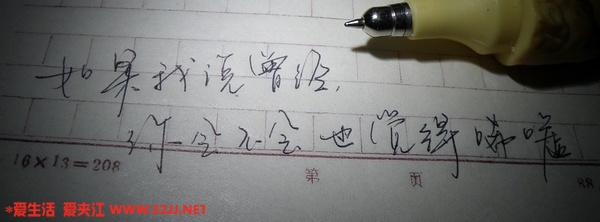 如果我说曾经，
你会不会也觉得唏嘘
16×13=208
第 页
88
*爱生活 爱夹江 WWW.SZJJ.NET